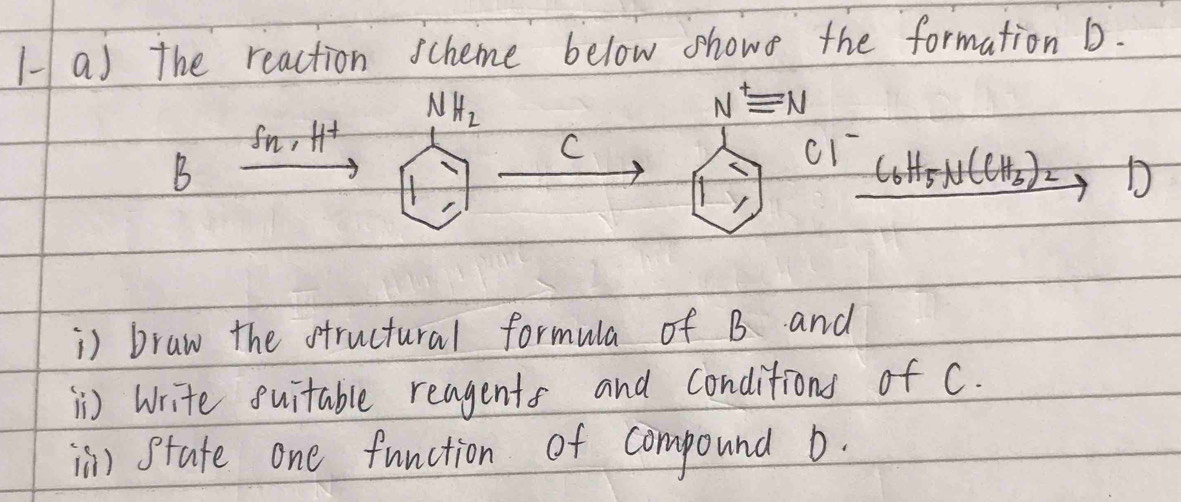 1- a) The reaction scheme below shows the formation D.
NH₂ N⁺≡N
B Sn, H⁺ C Cl⁻ C₆H₅N(CH₃)₂ D
i) Draw the structural formula of B and
ii) Write suitable reagents and conditions of C.
iii) State one function of compound D.